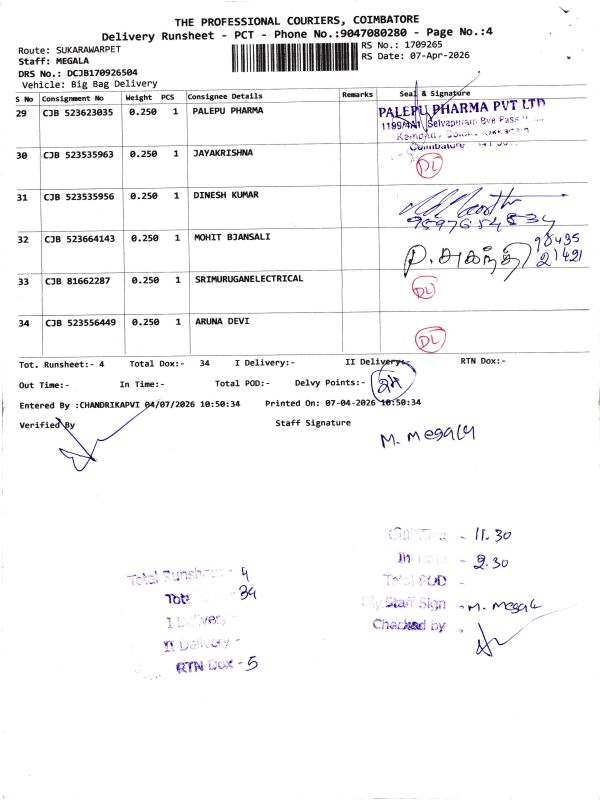 THE PROFESSIONAL COURIERS, COIMBATORE
Delivery Runsheet - PCT - Phone No.:9047080280 - Page No.:4
Route: SUKARAWARPET
Staff: MEGALA
DRS No.: DCJB170926504
Vehicle: Big Bag Delivery
RS No.: 1709265
RS Date: 07-Apr-2026
S No Consignment No Weight PCS Consignee Details Remarks Seal & Signature
29 CJB 523623035 0.250 1 PALEPU PHARMA
PALEPU PHARMA PVT LTD
1199/4A1, Selvapuram Bye Pass
Coimbatore
30 CJB 523535963 0.250 1 JAYAKRISHNA DL
31 CJB 523535956 0.250 1 DINESH KUMAR
32 CJB 523664143 0.250 1 MOHIT BJANSALI
98435
21421
33 CJB 81662287 0.250 1 SRIMURUGANELECTRICAL DL
34 CJB 523556449 0.250 1 ARUNA DEVI DL
Tot. Runsheet:- 4 Total Dox:- 34 I Delivery:- II Delivery:- RTN Dox:-
Out Time:- In Time:- Total POD:- Delvy Points:-
Entered By :CHANDRIKAPVI 04/07/2026 10:50:34 Printed On: 07-04-2026 10:50:34
Verified By Staff Signature
M. Megala
Total Runsheet - 4
34
I Delivery -
II Delivery -
RTN Dox - 5
- 11.30
- 2.30
Total POD -
Staff Sign - M. Megala
Checked by -